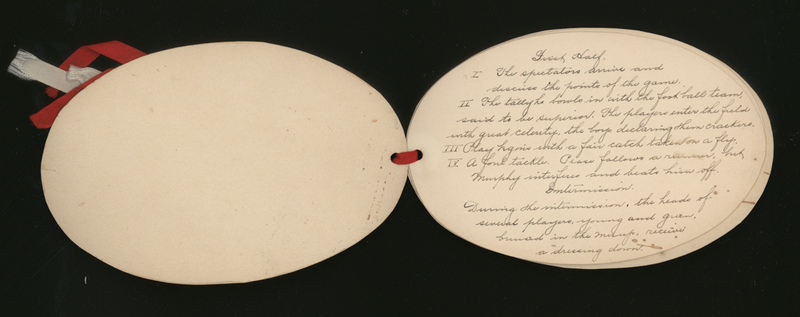 First Half.
I The spectators arrive and
discuss the points of the game.
II The tallyho bowls in with the foot ball team,
said to be superior. The players enter the field
with great celerity, the boys declaring them crackers.
III Play begins with a fair catch taken on a fly.
IV A foul tackle. Pease follows a but
Murphy interferes and beats him off.
Intermission.
During the intermission, the heads of
several players, young and green,
bruised in the mixup, receive
a "dressing down".